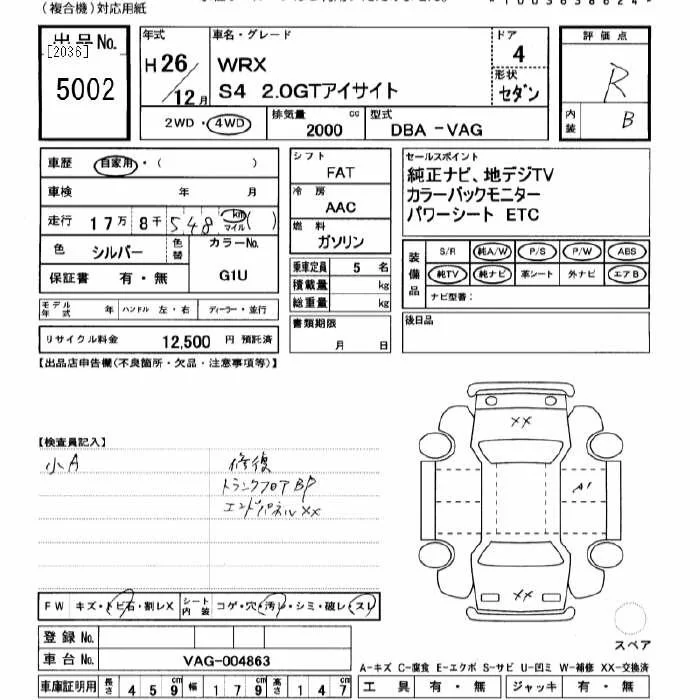 (複合機)対応用紙
出品No.
[2036]
5002
年式
H26/12月
車名・グレード
WRX
S4 2.0GTアイサイト
ドア
4
形状
セダン
評価点
R
内装
B
2WD・4WD
排気量
2000 cc
型式
DBA -VAG
車歴 自家用・( )
車検 年 月
走行 17万 8千 548 km マイル ( )
色 シルバー 色替
カラーNo.
G1U
保証書 有・無
モデル年式 年 ハンドル 左・右 ディーラー・並行
リサイクル料金 12,500 円 預託済
シフト
FAT
冷房
AAC
燃料
ガソリン
乗車定員 5 名
積載量 kg
総重量 kg
書類期限
月 日
セールスポイント
純正ナビ、地デジTV
カラーバックモニター
パワーシート ETC
装備品
S/R 純A/W P/S P/W ABS
純TV 純ナビ 革シート 外ナビ エアB
ナビ型番:
後日品
【出品店申告欄(不良箇所・欠品・注意事項等)】
【検査員記入】
小A
修復
トランクフロアBP
エンドパネルXX
XX
A1
XX
FW キズ・トビ石・割レX
シート内装 コゲ・穴・汚レ・シミ・破レ・スレ
登録No.
車台No. VAG-004863
車庫証明用 長さ 459cm 幅 179cm 高さ 147cm
スペア
A-キズ C-腐食 E-エクボ S-サビ U-凹ミ W-補修 XX-交換済
工具 有・無 ジャッキ 有・無